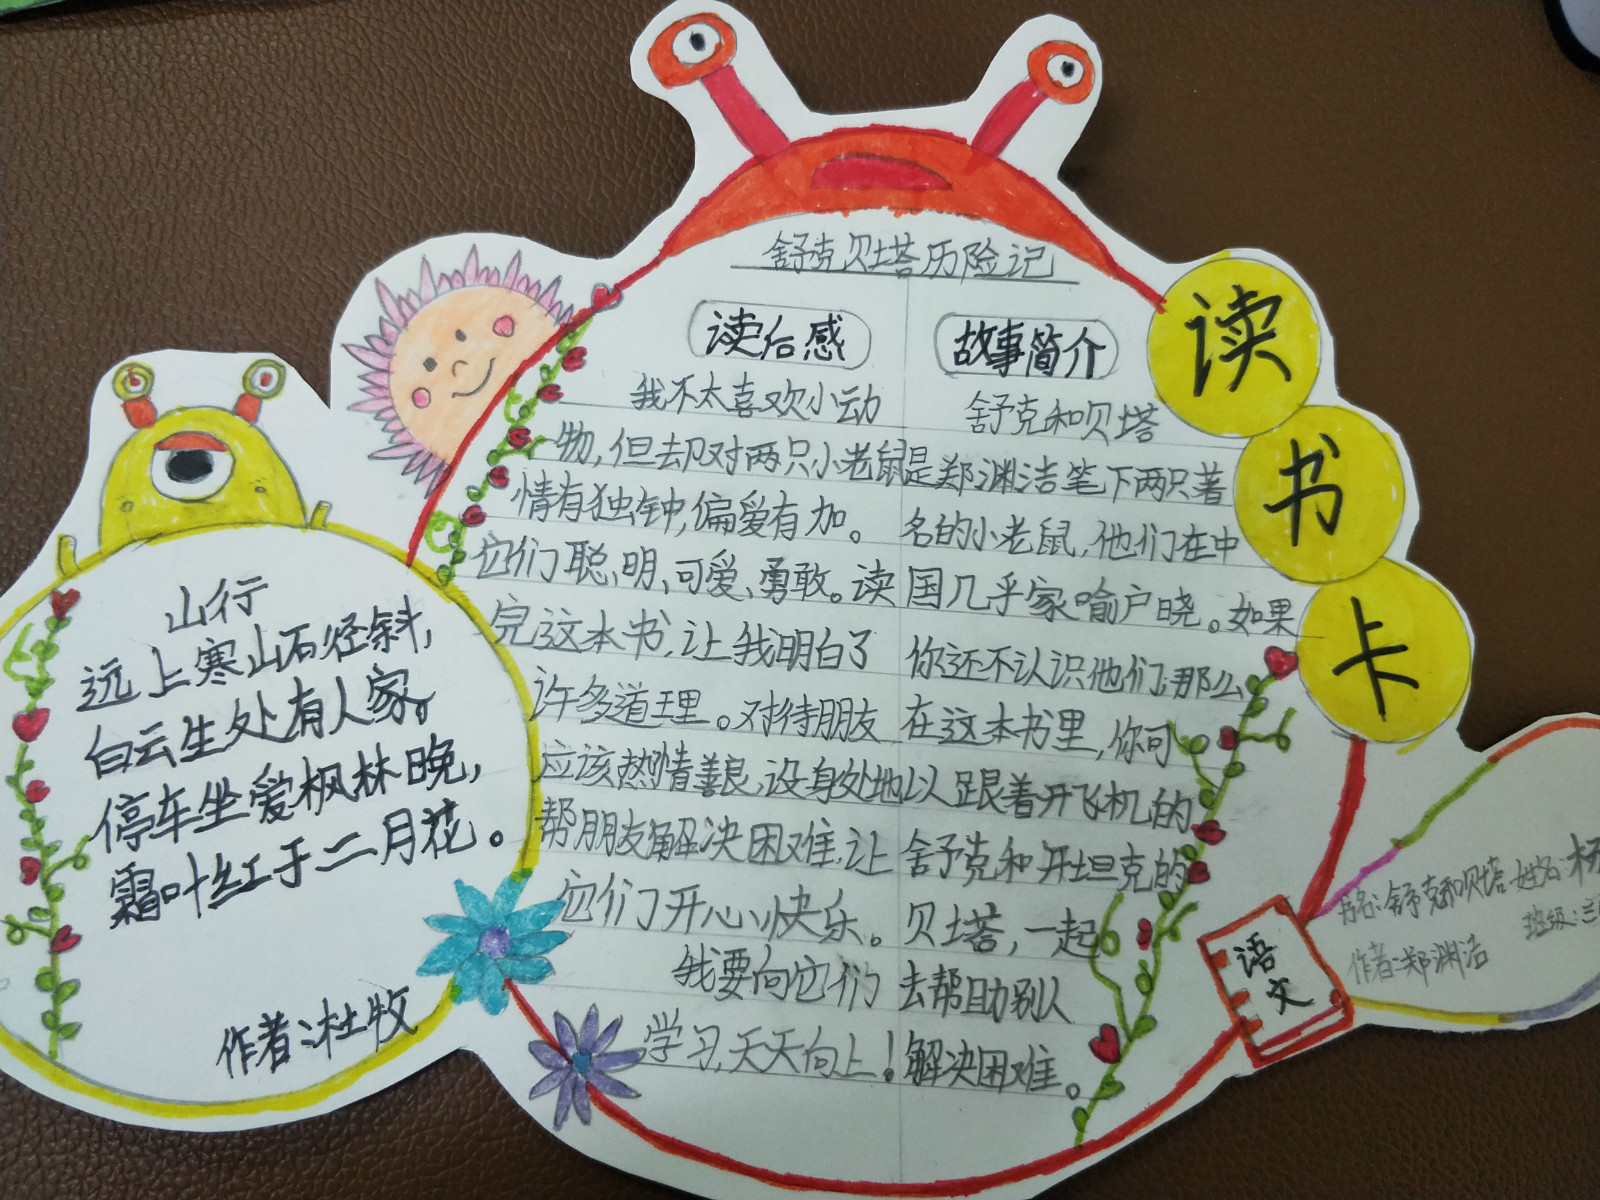 舒克贝塔历险记
读后感
我不太喜欢小动
物，但却对两只小老鼠
情有独钟，偏爱有加。
它们聪明、可爱、勇敢。读
完这本书，让我明白了
许多道理。对待朋友
应该热情善良，设身处地
帮朋友解决困难，让
它们开心快乐。
我要向它们
学习，天天向上！
故事简介
舒克和贝塔
是郑渊洁笔下两只著
名的小老鼠，他们在中
国几乎家喻户晓。如果
你还不认识他们，那么
在这本书里，你可
以跟着开飞机的
舒克和开坦克的
贝塔，一起
去帮助别人
解决困难。
读
书
卡
山行
远上寒山石径斜，
白云生处有人家。
停车坐爱枫林晚，
霜叶红于二月花。
作者：杜牧
语
文
书名：舒克和贝塔 姓名：杨
作者：郑渊洁 班级：三